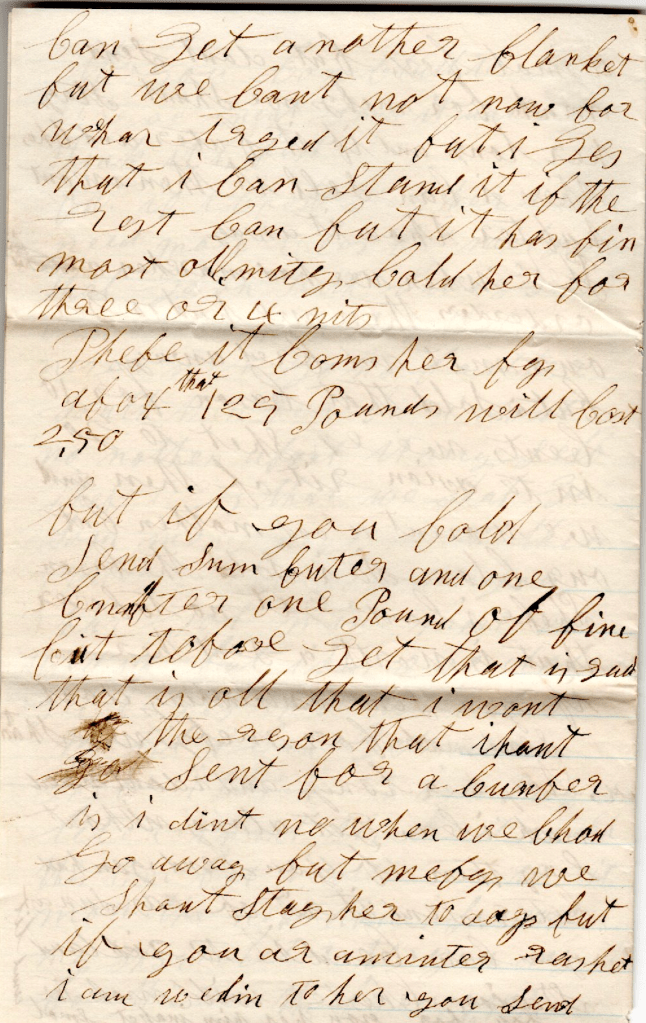 Can Get another blanket
but we Cant not now for
whar taged it but i Ges
that i Can Stand it if the
rest Can but it has bin
most ollmity Cold her for
three or 4 nits
Phebe it Coms her by
abox that 125 Pounds will Cost
2,50
but if you Cold
Send Sum buter and one
Cumfter one Pound of fine
Cut tobace Get that is gud
that is oll that i wont
the reson that i hant
Sent for a Cumfter
is i dint no when we Shod
Go away but meby we
Shant Stay her to days but
if you ar a minter
i am to her you Send